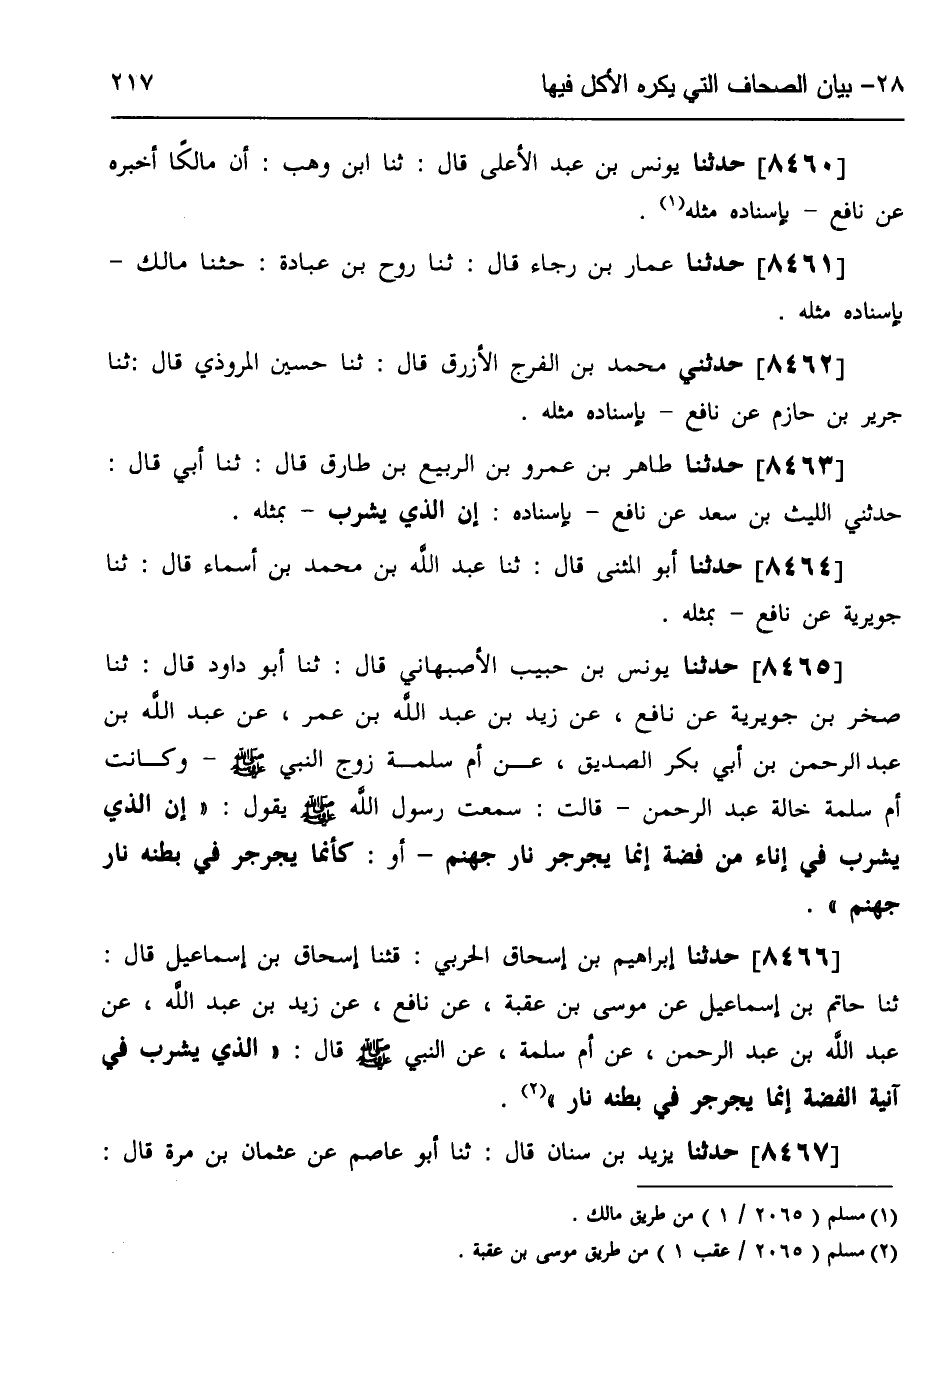 ٢٨- بيان الصحاف التي يكره الأكل فيها ٢١٧
[٨٤٦٠] حدثنا يونس بن عبد الأعلى قال : ثنا ابن وهب : أن مالكًا أخبره
عن نافع – بإسناده مثله(١) .
[٨٤٦١] حدثنا عمار بن رجاء قال : ثنا روح بن عبادة : حثنا مالك –
بإسناده مثله .
[٨٤٦٢] حدثني محمد بن الفرج الأزرق قال : ثنا حسين المروذي قال :ثنا
جرير بن حازم عن نافع – بإسناده مثله .
[٨٤٦٣] حدثنا طاهر بن عمرو بن الربيع بن طارق قال : ثنا أبي قال :
حدثني الليث بن سعد عن نافع – بإسناده : إن الذي يشرب – بمثله .
[٨٤٦٤] حدثنا أبو المثنى قال : ثنا عبد اللَّه بن محمد بن أسماء قال : ثنا
جويرية عن نافع – بمثله .
[٨٤٦٥] حدثنا يونس بن حبيب الأصبهاني قال : ثنا أبو داود قال : ثنا
صخر بن جويرية عن نافع ، عن زيد بن عبد اللَّه بن عمر ، عن عبد اللَّه بن
عبد الرحمن بن أبي بكر الصديق ، عن أم سلمة زوج النبي ﷺ – وكانت
أم سلمة خالة عبد الرحمن – قالت : سمعت رسول اللَّه ﷺ يقول : « إن الذي
يشرب في إناء من فضة إنما يجرجر نار جهنم – أو : كأنما يجرجر في بطنه نار
جهنم » .
[٨٤٦٦] حدثنا إبراهيم بن إسحاق الحربي : قثنا إسحاق بن إسماعيل قال :
ثنا حاتم بن إسماعيل عن موسى بن عقبة ، عن نافع ، عن زيد بن عبد اللَّه ، عن
عبد اللَّه بن عبد الرحمن ، عن أم سلمة ، عن النبي ﷺ قال : « الذي يشرب في
آنية الفضة إنما يجرجر في بطنه نار »(٢) .
[٨٤٦٧] حدثنا يزيد بن سنان قال : ثنا أبو عاصم عن عثمان بن مرة قال :
(١) مسلم ( ٢٠٦٥ / ١ ) من طريق مالك .
(٢) مسلم ( ٢٠٦٥ / عقب ١ ) من طريق موسى بن عقبة .